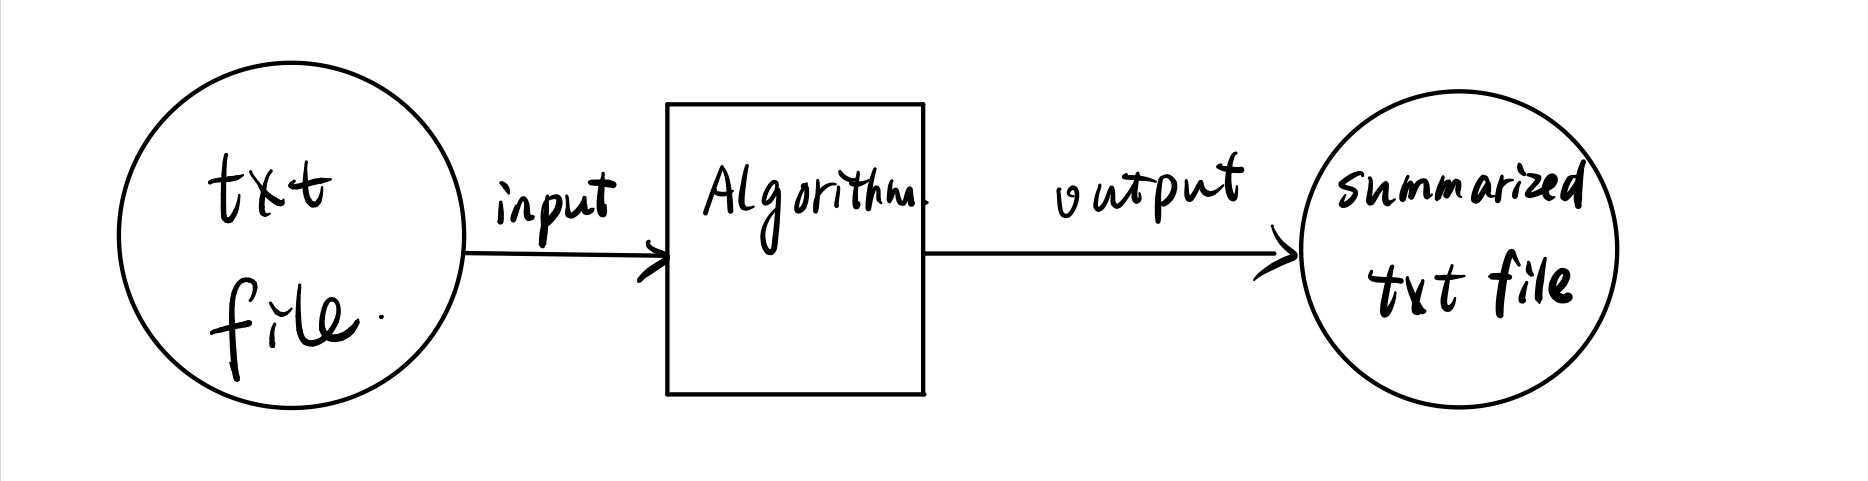 txt
file.
input
Algorithm
output
summarized
txt file